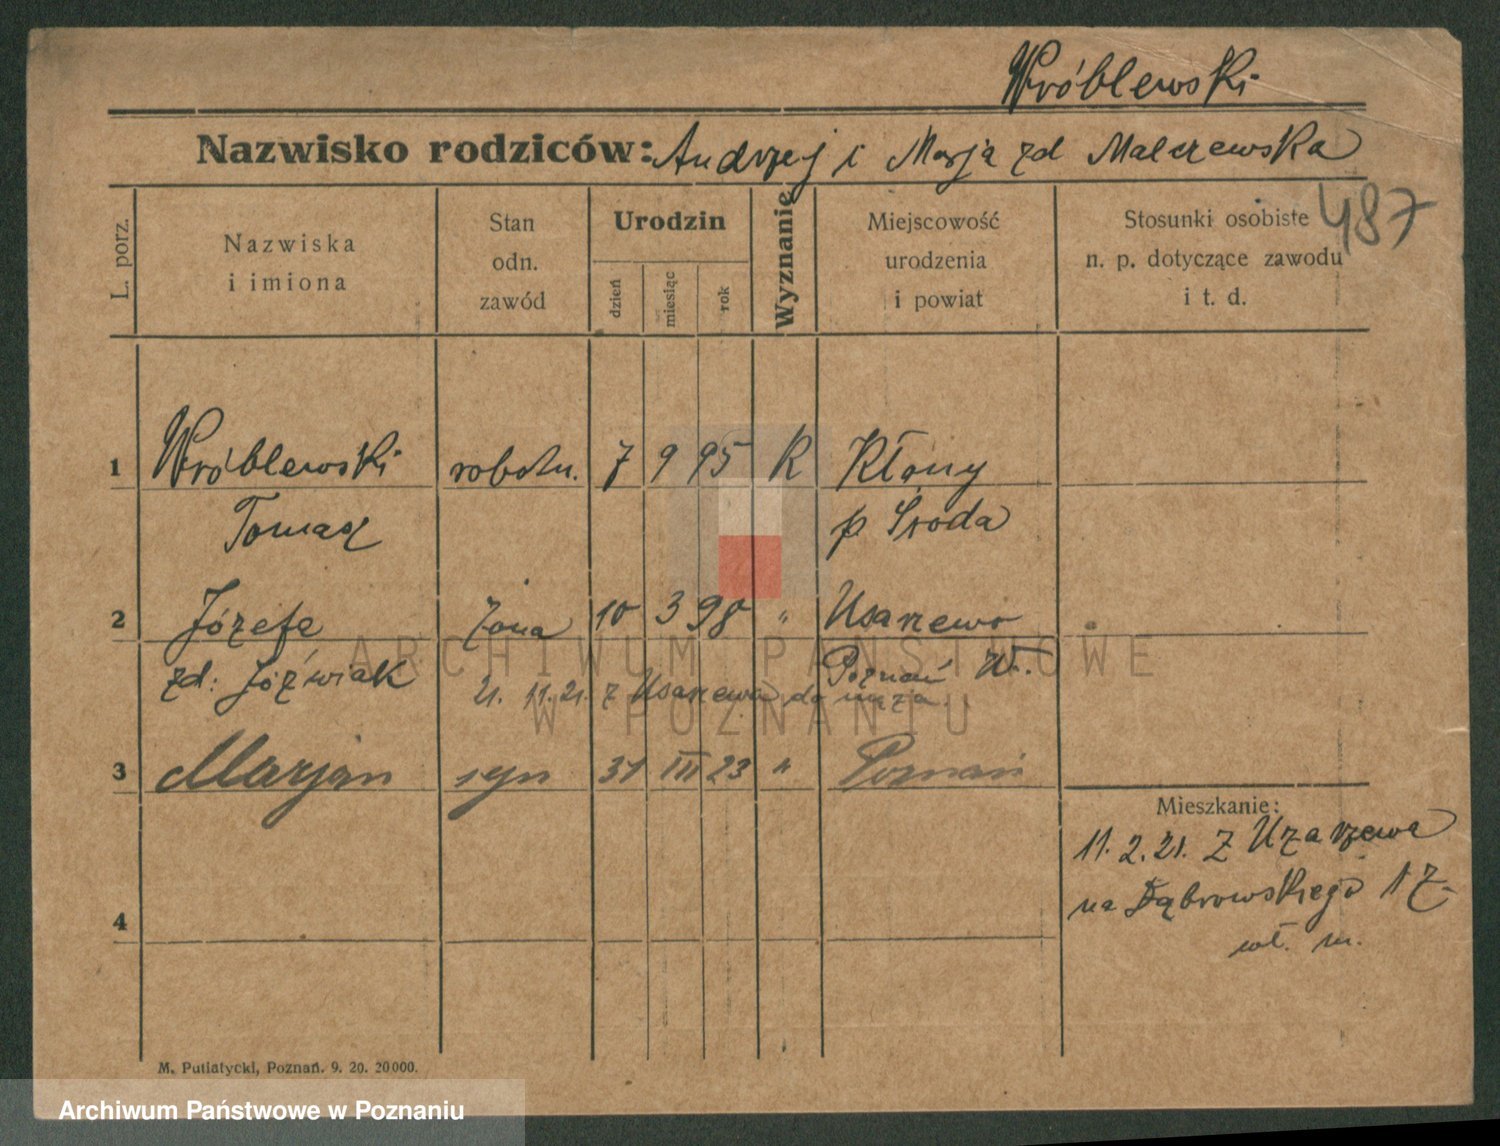 Wróblewski
Nazwisko rodziców: Andrzej i Marja zd Malczewska
487
L. porz.
Nazwiska
i imiona
Stan
odn.
zawód
Urodzin
dzień
miesiąc
rok
Wyznanie
Miejscowość
urodzenia
i powiat
Stosunki osobiste
n. p. dotyczące zawodu
i t. d.
1 Wróblewski robotn. 7 9 95 K Kłony
Tomasz p Środa
2 Józefa żona 10 3 98 " Usarzewo
zd: Jóźwiak Poznań W.
21. 11. 21. z Usarzewa do męża
3 Marjan syn 31 III 23 " Poznań
Mieszkanie:
11. 2. 21. z Uzarzewa
na Dąbrowskiego 17
4
wł. m.
M. Putiatycki, Poznań. 9. 20. 20000.
ARCHIWUM PAŃSTWOWE
W POZNANIU
Archiwum Państwowe w Poznaniu